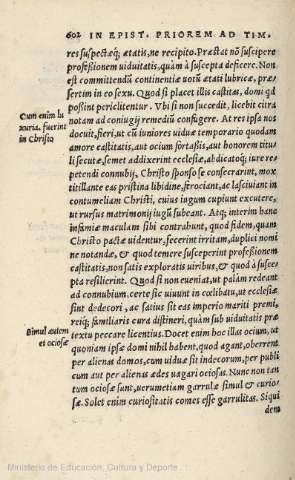 602 IN EPIST. PRIOREM AD TIM.
res suspectæq́; ætatis, ne recipito. Præstat nō suscipere
professionem uiduitatis, quàm à suscepta deficere. Non
est committendū continentiæ uotū ætati lubricæ, præ-
sertim in eo sexu. Quod si placet illis castitas, domi qd
possint periclitentur. Vbi si non succedit, licebit citra
Cum enim lu
notam ad coniugij remediū confugere. At rei ipsa nos
xuriæ, fuerint
docuit, fieri, ut cū iuniores uiduæ temporario quodam
in Christo
amore castitatis, aut ocium fortassis, aut honorem titu-
li secutæ, semet addixerint ecclesiæ, abdicatoq́; iure re-
petendi connubij, Christo sponso se consecrarint, mox
titillante eas pristina libidine, ferociant, ac lasciuiant in
contumeliam Christi, cuius iugum cupiunt excutere,
ut rursus matrimonij iugū subeant. Atq; interim hanc
infamiæ maculam sibi contrahunt, quod fidem, quam
Christo pactæ uidentur, fecerint irritam, duplici nomi
ne notandæ, & quod temere susceperint professionem
castitatis, non satis exploratis uiribus, & quod à susce-
pta resilierint. Quod si non eueniat, ut palàm redeant
ad connubium, certe sic uiuunt in cœlibatu, ut ecclesiæ
sint dedecori, ac satius sit eas imperio mariti premi,
reiq́; familiaris cura distineri, quàm sub uiduitatis præ
Simul autem
textu peccare licentius. Docet enim hoc illas ocium, ut
et ociosæ
quoniam ipsæ domi nihil habent, quod agant, oberrent
per alienas domos, cum uiduæ sit indecorum, per publi
cum aut per alienas ædes uagari ociosas. Nunc non tan
tum ociosæ sunt, uerumetiam garrulæ simul & curio-
sæ. Solet enim curiositatis comes esse garrulitas. Siqui
dem
Ministerio de Educación, Cultura y Deporte